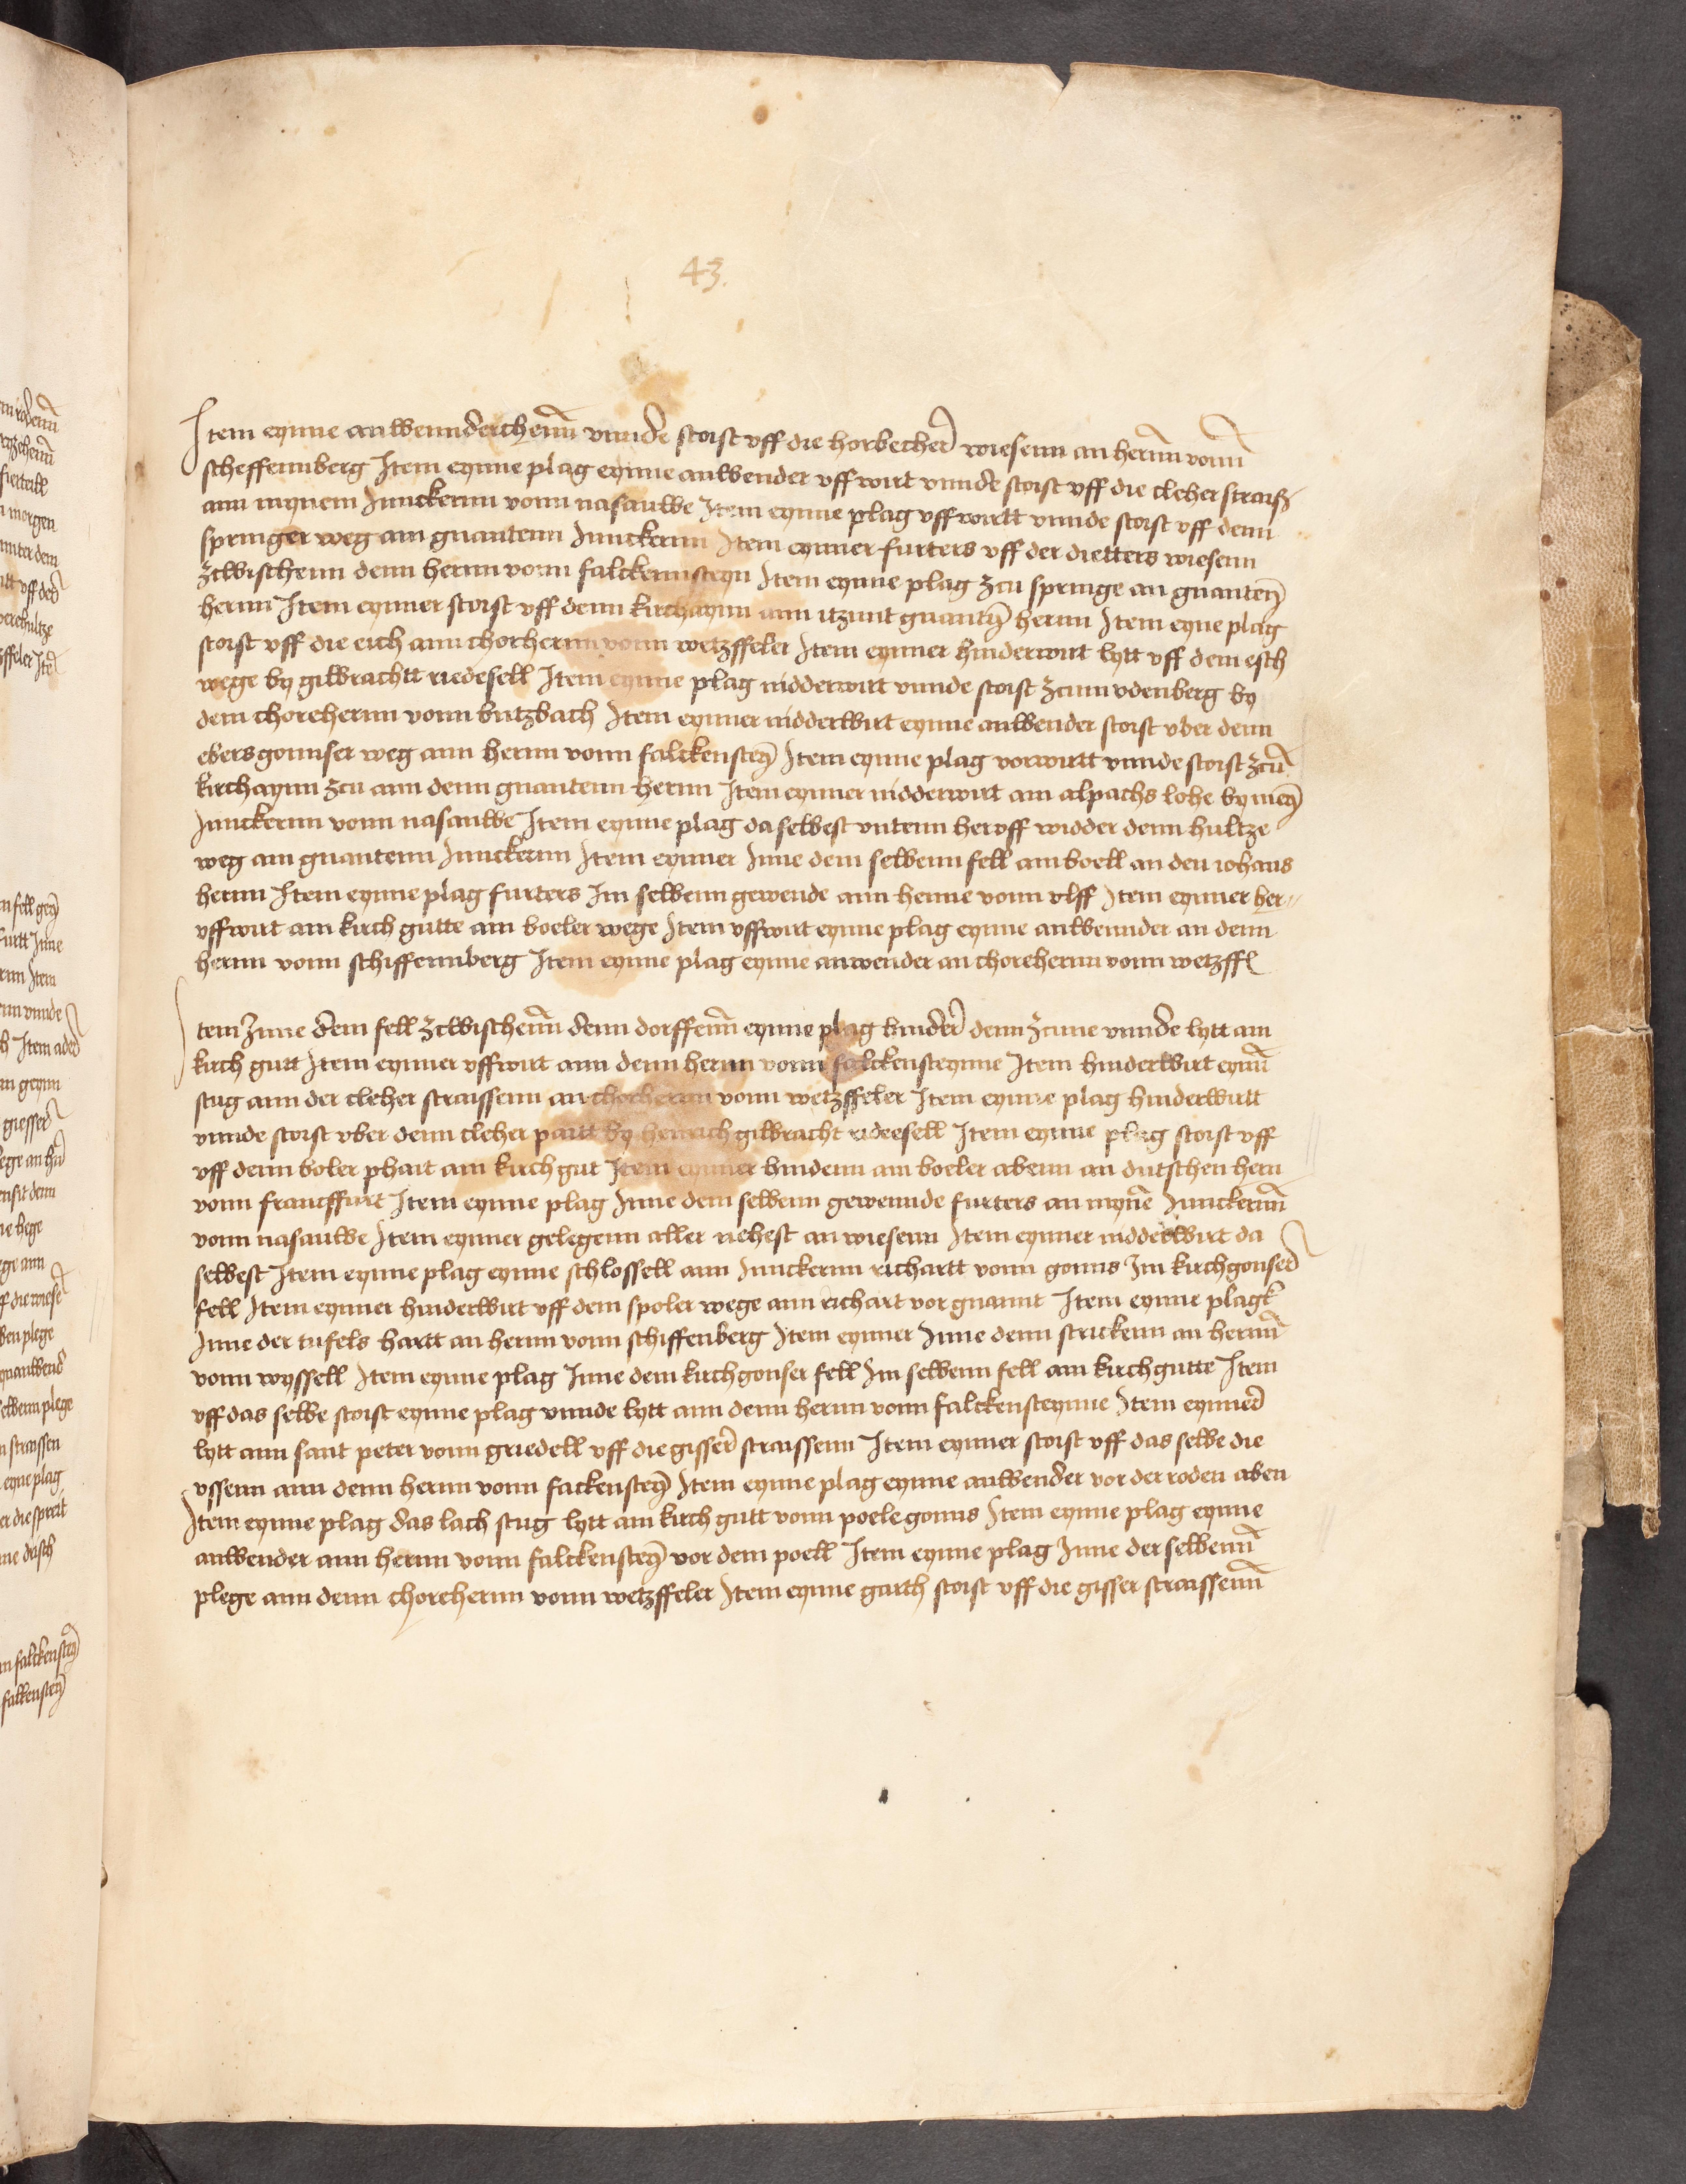 43.
Item eynne anwennderchenn vnnde stoist vff die horbecher wiesenn an hernn vonn
scheffennberg Item eynne plag eynne anwender vffwirt vnnde stoist vff die cleher straiß
ann mynem Junckernn vonn nasauwe Item eynne plag vffwurtt vnnde stoist vff denn
springer weg am gnantenn Junckernn Item eynner furters vff der dietters wiesenn
zcwischenn denn hernn vonn falckennsteyn Item eynne plag zcu springe an gnanten
hernn Item eynner stoist vff denn kirchaynn ann itzunt gnantn hernn Item eyne plag
stoist vff die eich ann chorhernn vonn wetzffeler Item eynner hinderwirt lytt vff dem esch
wege by gilbrachtt riedesell Item eynne plag nidderwirt vnnde stoist zcum vdenberg by
dem chorehernn vonn butzbach Item eynner nidderwirt eynne anwender stoist vber denn
ebersgonnser weg ann hernn vonn falckenstey Item eynne plag vorwurtt vnnde stoist zcu
kirchaynn zcu ann denn gnantenn hernn Item eynner nidderwirt am alpachs lohe by mey
Junckernn vonn nasauwe Item eynne plag daselbest vntenn heruff widder denn hultze
weg am gnantenn Junckernn Item eynner Jnne dem selbenn fell am boell an den iohans
hernn Item eynne plag furters Jm selbenn gewende ann henne vonn vlff Item eynner her
vffwirt am kirch gutte am boeler wege Item vffwirt eynne plag eynne anwennder an denn
hernn vonn schiffennberg Item eynne plag eynne anwender an chorehernn vonn wetzffl
Item Jnne dem fell zcwischenn denn dorffenn eynne plag hinder denn zcune vnnde lytt am
kirch gutt Item eynner vffwirt ann denn hernn vonn falckensteynne Item hinderwirt eynn
stug ann der cleher straissenn an chorhernn vonn wetzffeler Item eynne plag hinderwirtt
vnnde stoist vber denn cleher partt by henrich gilbracht rideesell Item eynne plag stoist vff
vff denn boler phait am kirch gut Item eynner hindenn am boeler abenn an dutschen hern
vonn francffurt Item eynne plag Jnne dem selbenn gewennde furters an myne Junckernn
vonn nasauwe Item eynner gelegenn aller nehest an wiesenn Item eynner nidderwirt da
selbest Item eynne plag eynne schlossell ann Junckernn richartt vonn gonns Jm kirchgonser
fell Item eynner hinderwirt vff dem spoler wege ann richart vor gnannt Item eynne plagk
Jnne der tufels hartt an hernn vonn schiffenberg Item eynner Jnne denn strickenn an hernn
vonn wyssell Item eynne plag Jnne dem kirchgonser fell Jm selbenn fell am kirchgutte Item
vff das selbe stoist eynne plag vnnde lytt ann denn hernn vonn falckensteynne Item eynner
lytt ann sant peter vonn griedell vff die gisser straissenn Item eynner stoist vff das selbe die
vssenn ann denn hernn vonn fackenstey Item eynne plag eynne anwender vor der roden aben
Item eynne plag das lach stug lytt am kirch gutt vonn poelegonns Item eynne plag eynne
anwender ann hernn vonn falckenstey vor dem poell Item eynne plag Jnne der selbenn
plege ann denn chorehernn vonn wetzffeler Item eynne garth stoist vff die gisser straissenn